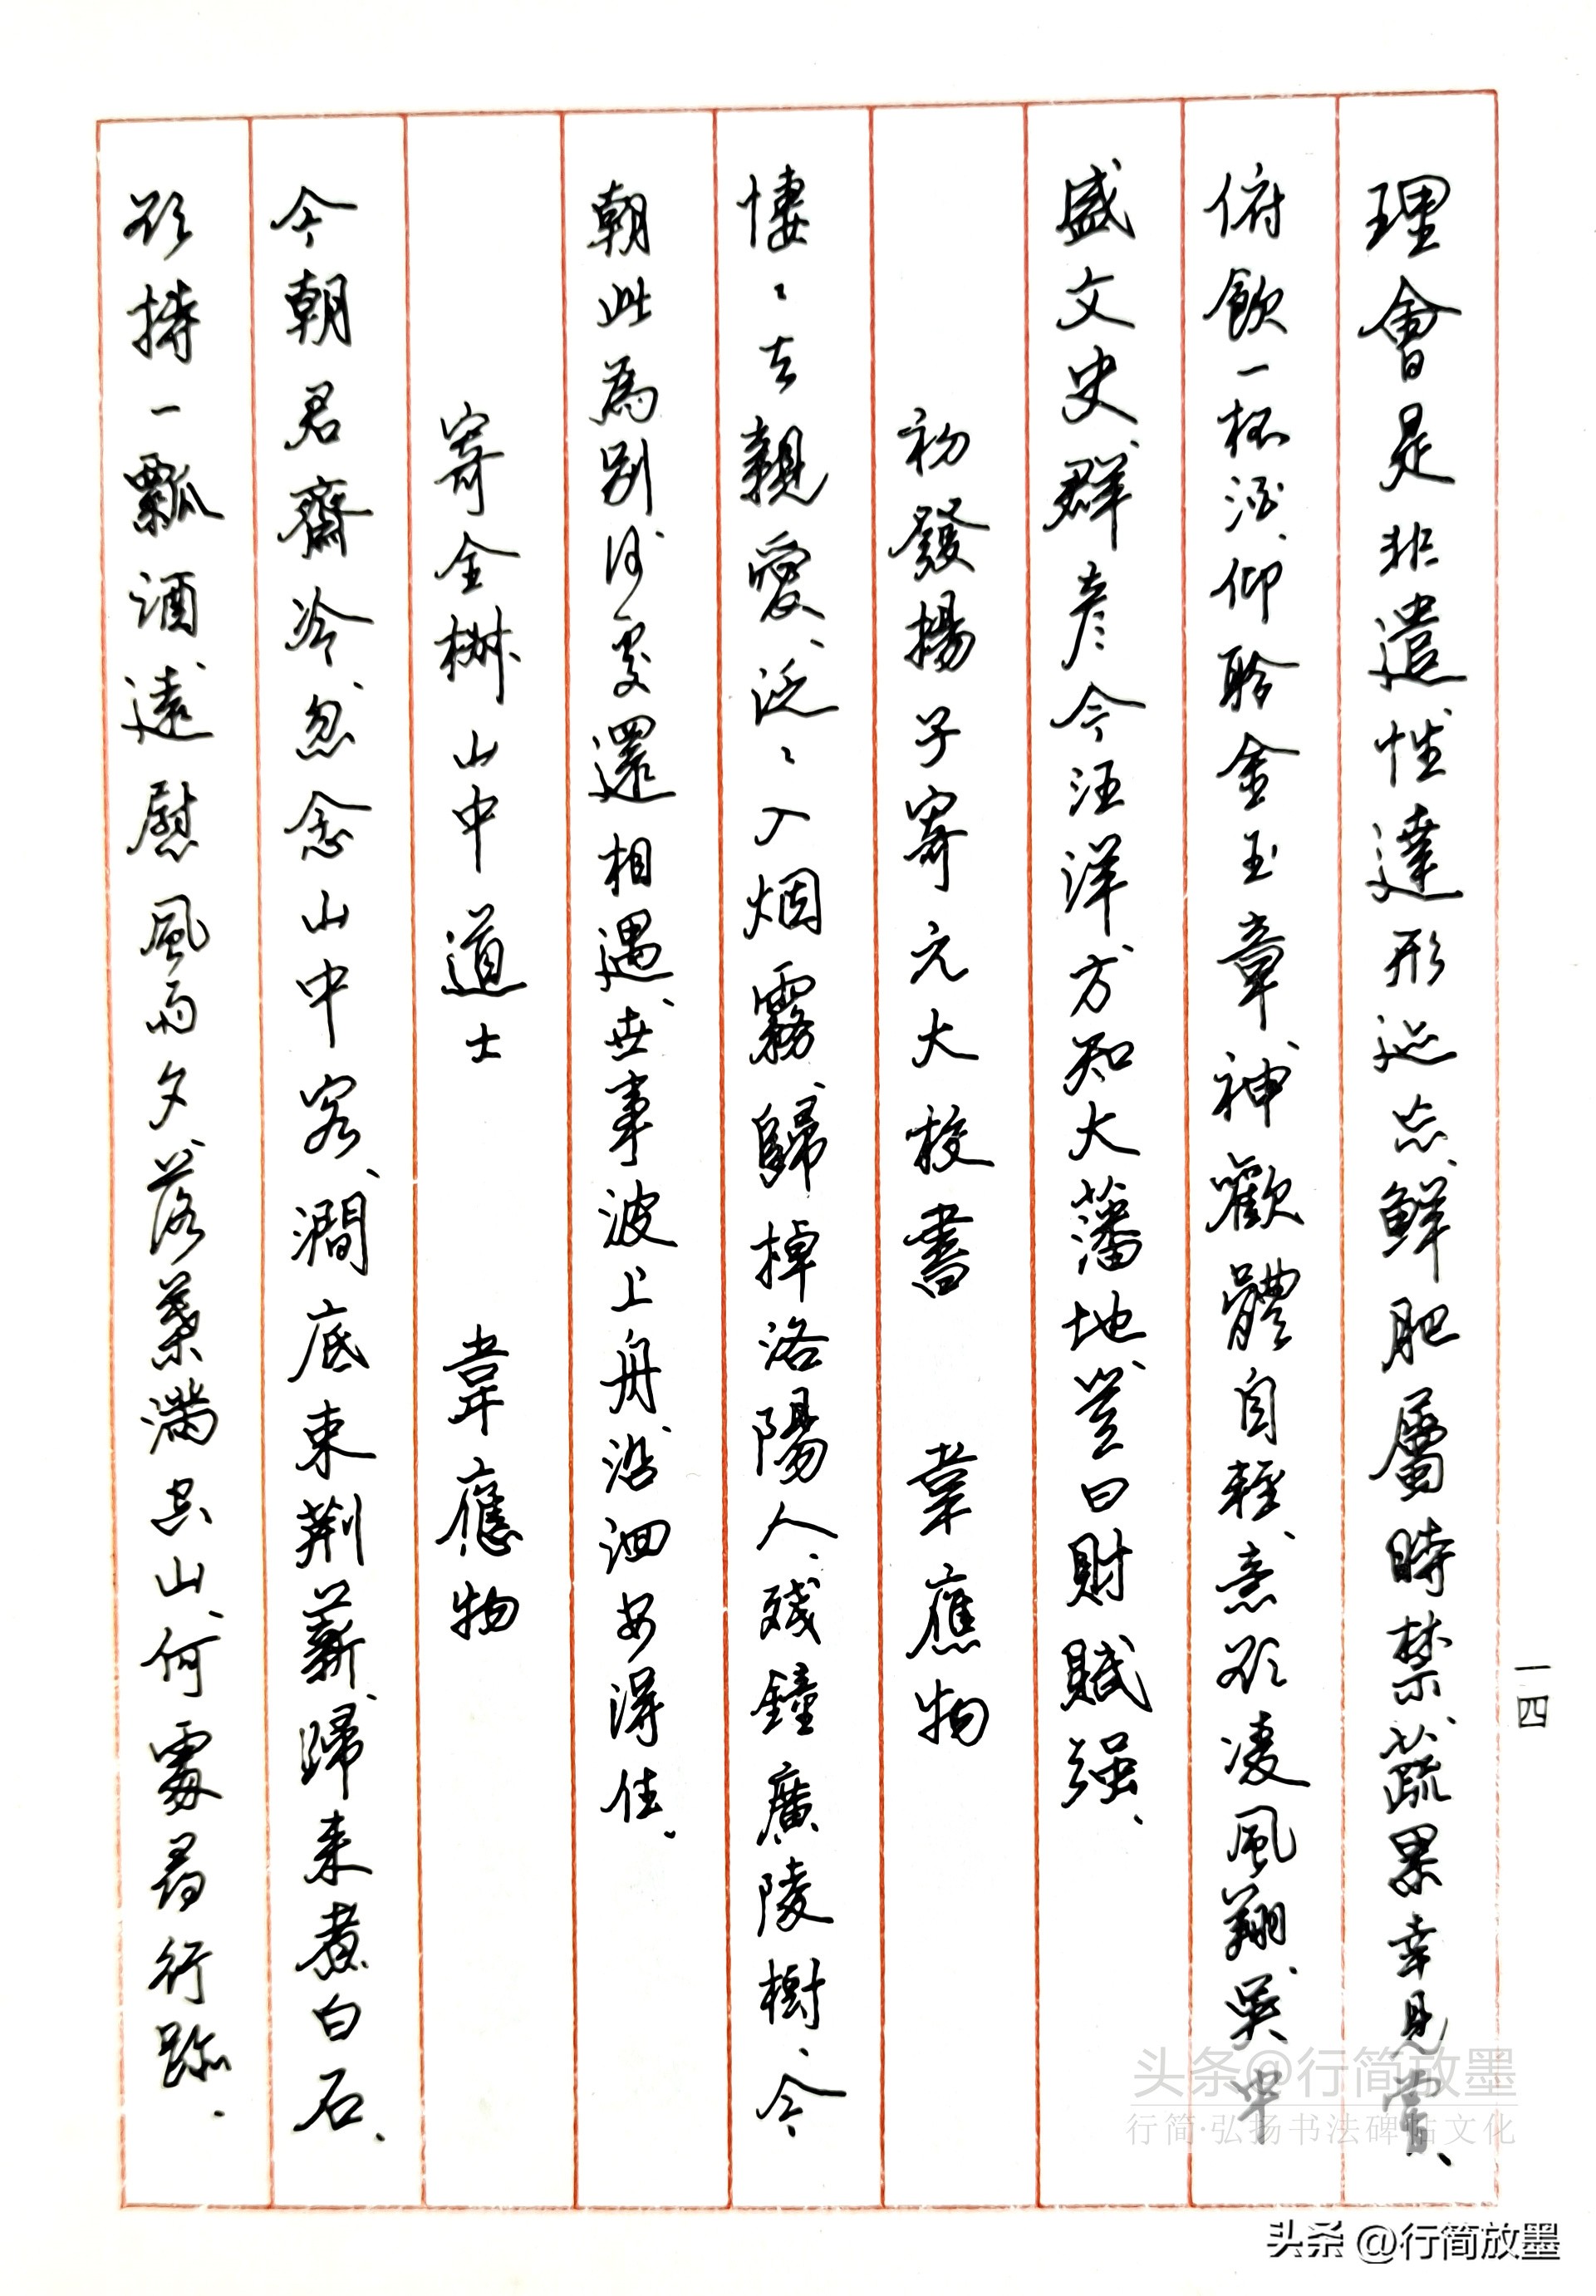 理會是非遣性達形迹忘鮮肥屬時禁蔬果幸見嘗、
俯飲一杯酒、仰聆金玉章神歡體自輕、意欲凌風翔吳中
盛文史群彥今汪洋方知大藩地豈曰財賦强、
初發揚子寄元大校書 韋應物
悽〻去親愛、泛〻入烟霧歸棹洛陽人、殘鐘廣陵樹、今
朝此為別何處還相遇世事波上舟沿洄安得住、
寄全椒山中道士 韋應物
今朝君齋冷忽念山中客、澗底束荆薪歸来煮白石、
欲持一瓢酒遠慰風雨夕落葉滿空山何處尋行跡、
一四
头条@行简放墨
行简·弘扬书法碑帖文化
头条 @行简放墨